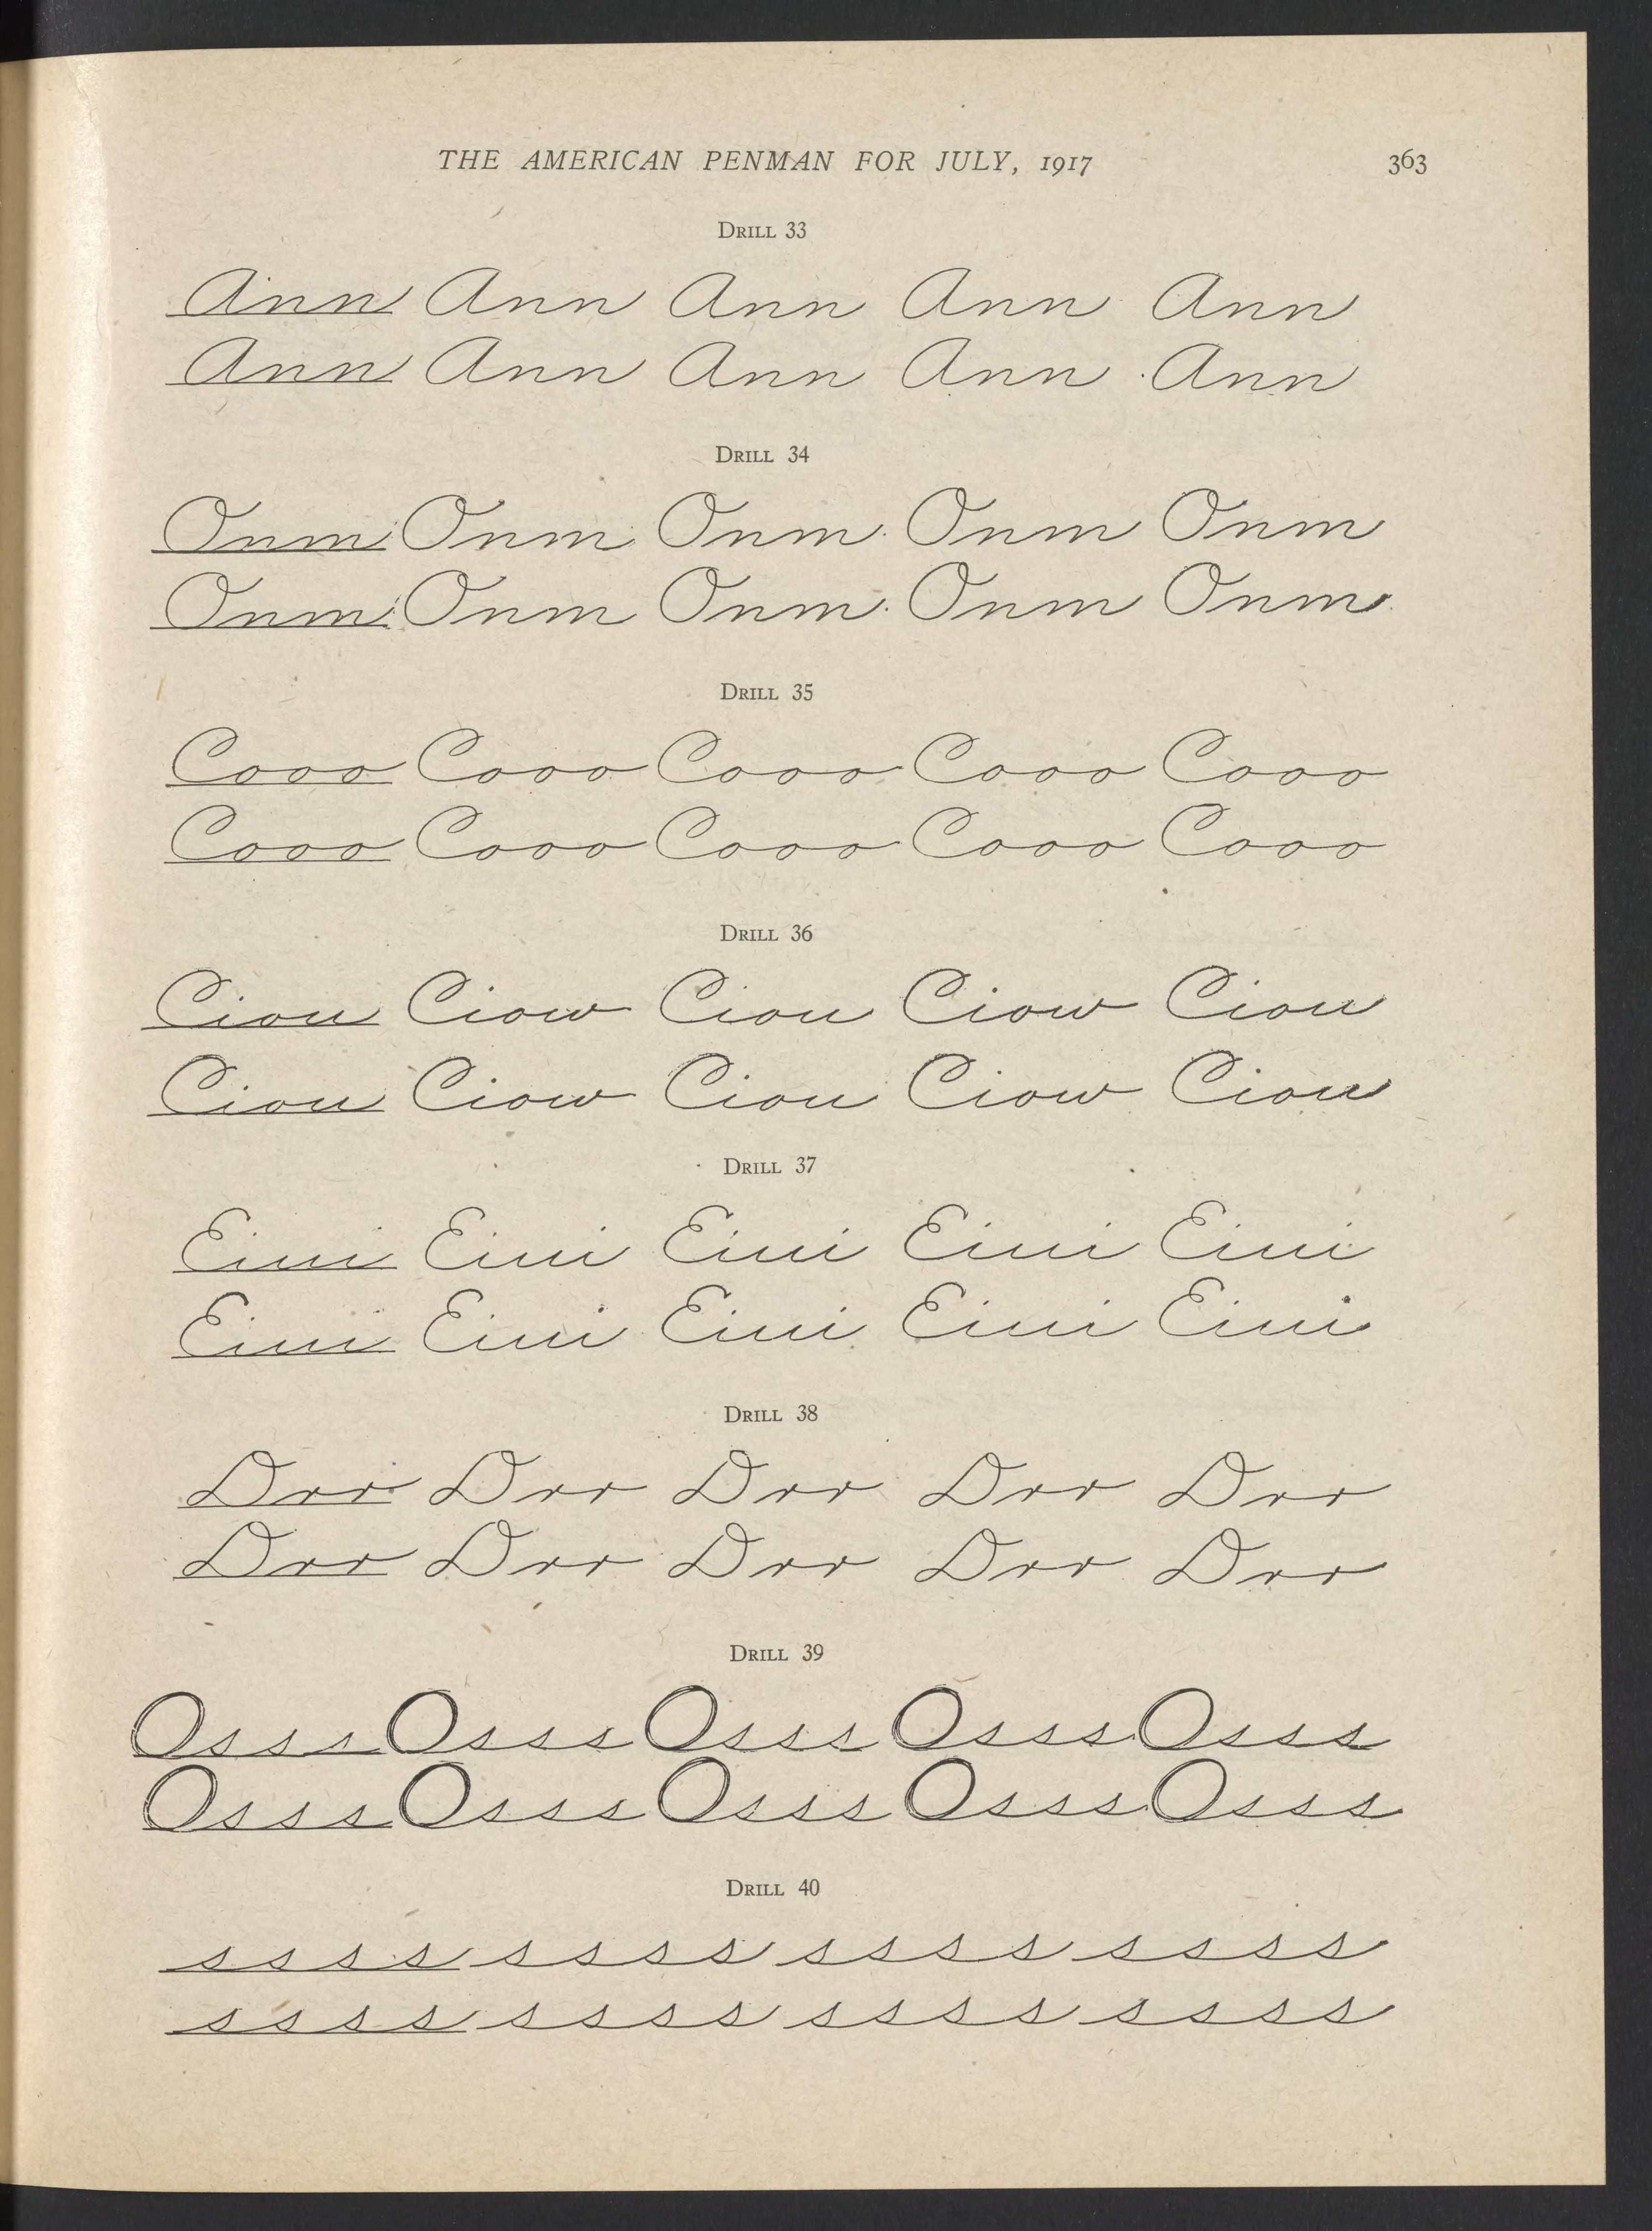 THE AMERICAN PENMAN FOR JULY, 1917 363
DRILL 33
Ann Ann Ann Ann Ann
Ann Ann Ann Ann Ann
DRILL 34
Onm Onm Onm Onm Onm
Onm Onm Onm Onm Onm
DRILL 35
Cooo Cooo Cooo Cooo Cooo
Cooo Cooo Cooo Cooo Cooo
DRILL 36
Ciou Ciow Ciou Ciow Ciou
Ciou Ciow Ciou Ciow Ciou
DRILL 37
Eiui Eiui Eiui Eiui Eiui
Eiui Eiui Eiui Eiui Eiui
DRILL 38
Drr Drr Drr Drr Drr
Drr Drr Drr Drr Drr
DRILL 39
Osss Osss Osss Osss Osss
Osss Osss Osss Osss Osss
DRILL 40
ssss ssss ssss ssss
ssss ssss ssss ssss